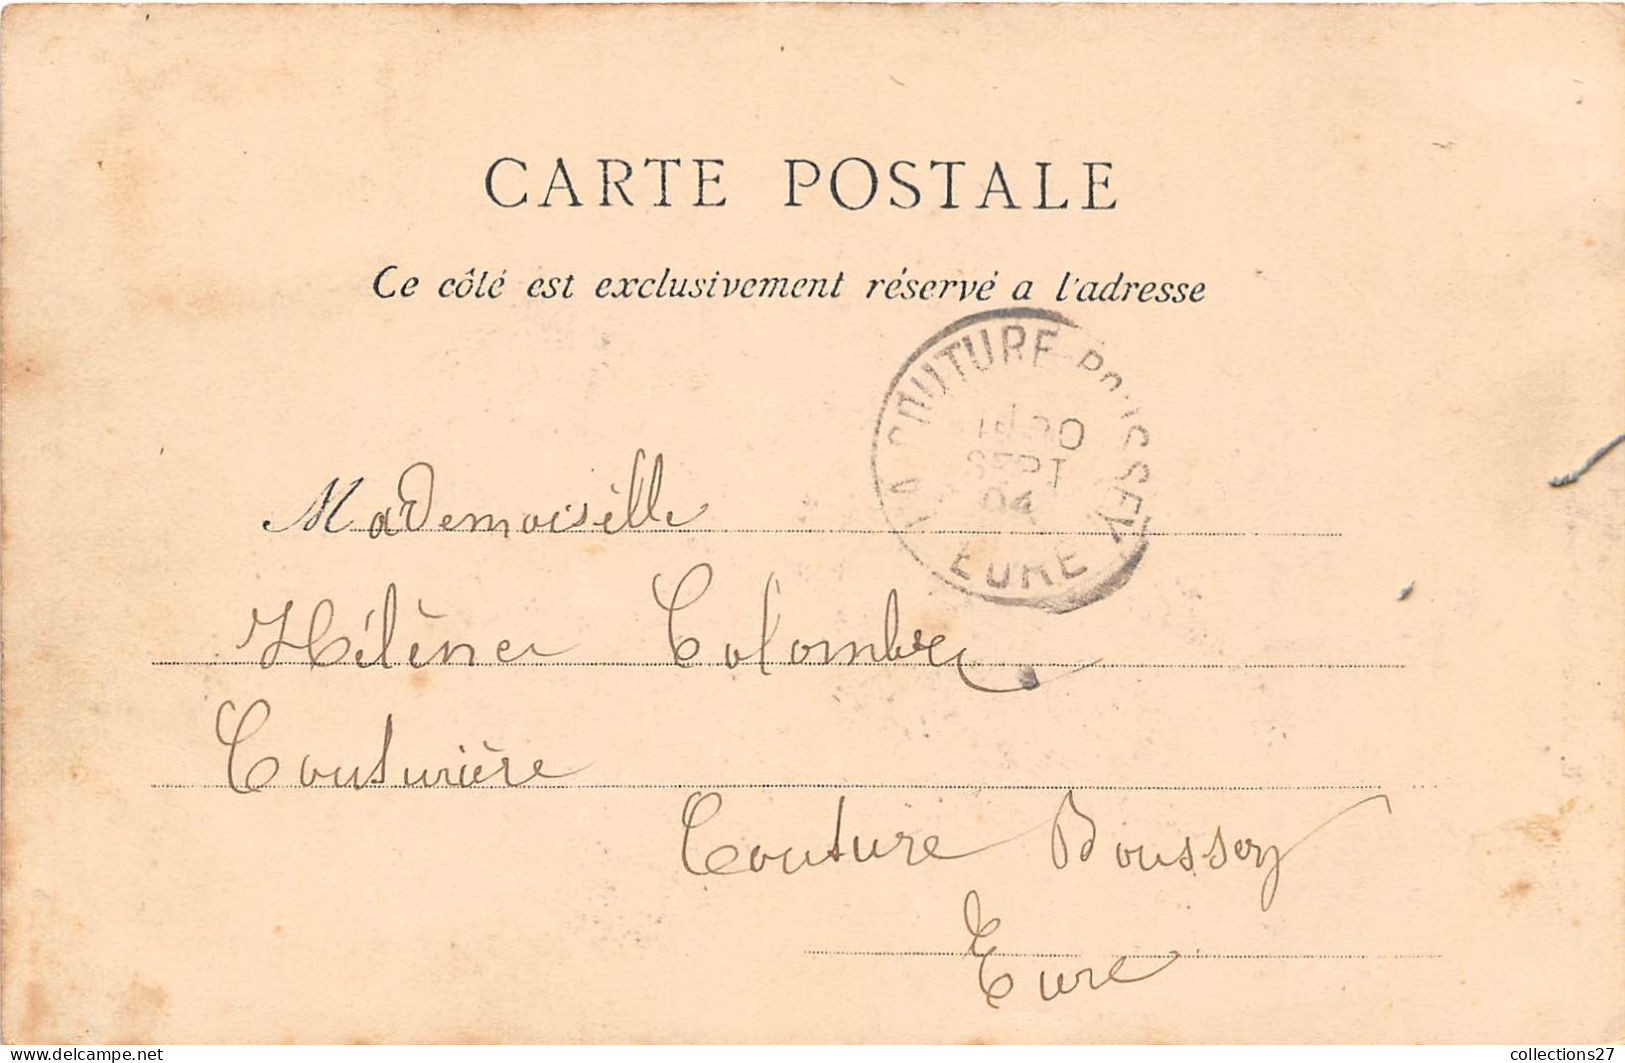 CARTE POSTALE
Ce côté est exclusivement réservé a l'adresse
LA COUTURE-BOUSSEY
SEPT
04
EURE
Mademoiselle
Hélène Colombe
Couturière
Couture Boussey
Eure
collections27